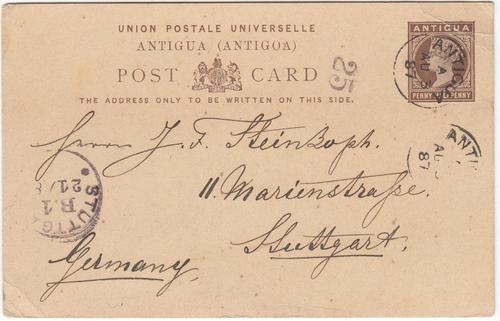 UNION POSTALE UNIVERSELLE
ANTIGUA (ANTIGOA)
POST CARD
THE ADDRESS ONLY TO BE WRITTEN ON THIS SIDE.
ANTIGUA
PENNY PENNY
ANTIGUA
A
AU
87
25
ANTI
AU
87
Herrn J. F. Steinkoph.
11. Marienstraße.
Stuttgart.
Germany.
STUTTG
B.1
21/8